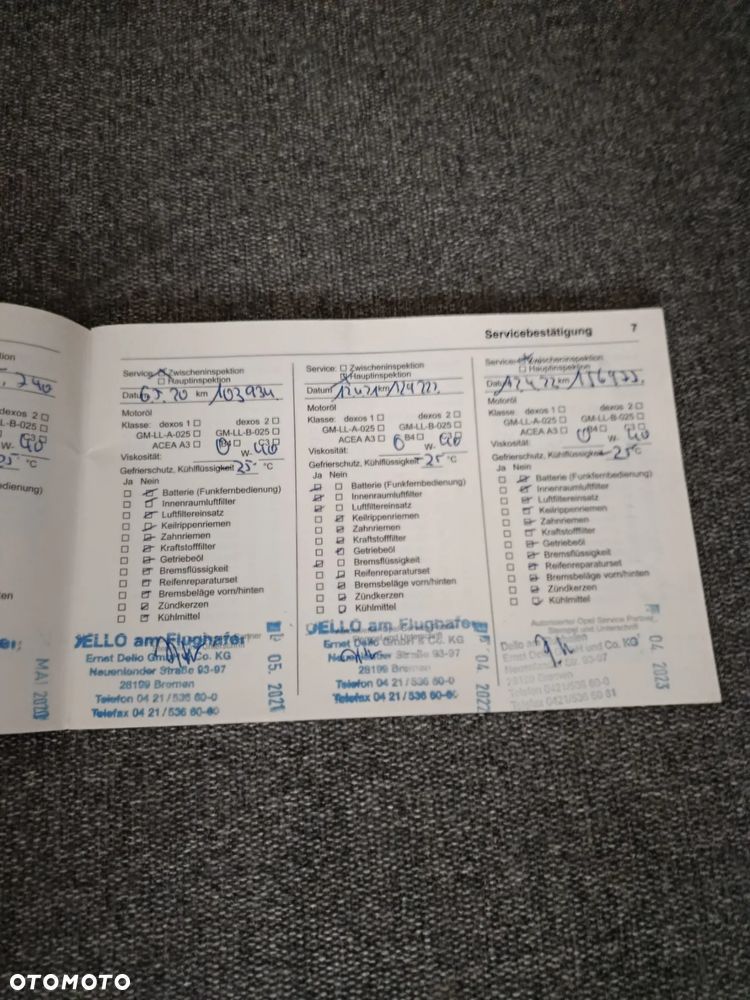 Servicebestätigung 7
, 240
dexos 2
LL-B-025
C3
W- 40
25° °C
MAI
Service: Zwischeninspektion
Hauptinspektion
Datum 6 5. 20 km 103934
Motoröl
Klasse: dexos 1 dexos 2
GM-LL-A-025 GM-LL-B-025
ACEA A3 B4 C3
Viskosität: 0 W- 40
Gefrierschutz, Kühlflüssigkeit 25° °C
Ja Nein
Batterie (Funkfernbedienung)
Innenraumluftfilter
Luftfiltereinsatz
Keilrippenriemen
Zahnriemen
Kraftstofffilter
Getriebeöl
Bremsflüssigkeit
Reifenreparaturset
Bremsbeläge vorn/hinten
Zündkerzen
Kühlmittel
DELLO am Flughafen
Ernst Dello GmbH & Co. KG
Neuenlander Straße 93-97
28199 Bremen
Telefon 04 21 / 536 60-0
Telefax 04 21 / 536 60-60
05. 2021
Service: Zwischeninspektion
Hauptinspektion
Datum 12 4 21 km
Motoröl
Klasse: dexos 1 dexos 2
GM-LL-A-025 GM-LL-B-025
ACEA A3 B4
Viskosität: 0 W- 40
Gefrierschutz, Kühlflüssigkeit 25° °C
Ja Nein
Batterie (Funkfernbedienung)
Innenraumluftfilter
Luftfiltereinsatz
Keilrippenriemen
Zahnriemen
Kraftstofffilter
Getriebeöl
Bremsflüssigkeit
Reifenreparaturset
Bremsbeläge vorn/hinten
Zündkerzen
Kühlmittel
DELLO am Flughafen
Ernst Dello GmbH & Co. KG
Neuenlander Straße 93-97
28199 Bremen
Telefon 04 21 / 536 60-0
Telefax 04 21 / 536 60-60
04. 2022
Service: Zwischeninspektion
Hauptinspektion
Datum 12 4 22 km
Motoröl
Klasse: dexos 1 dexos 2
GM-LL-A-025 GM-LL-B-025
ACEA A3 B4 C3
Viskosität: 0 W- 40
Gefrierschutz, Kühlflüssigkeit 25° °C
Ja Nein
Batterie (Funkfernbedienung)
Innenraumluftfilter
Luftfiltereinsatz
Keilrippenriemen
Zahnriemen
Kraftstofffilter
Getriebeöl
Bremsflüssigkeit
Reifenreparaturset
Bremsbeläge vorn/hinten
Zündkerzen
Kühlmittel
Autorisierter Opel Service Partner
Stempel und Unterschrift
Ernst Dello GmbH und Co. KG
Neuenlander Str. 93-97
28199 Bremen
Telefon 0421/536 60-0
04 2023
OTOMOTO